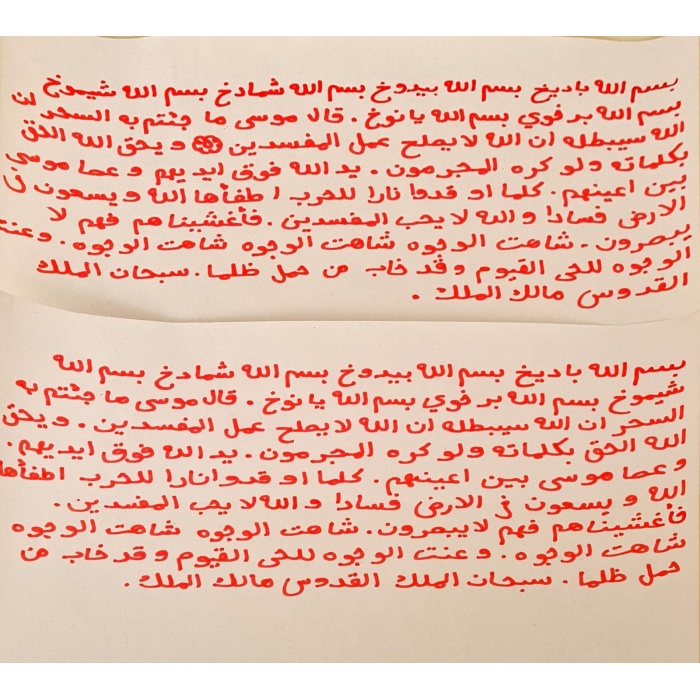 بسم الله باديخ بسم الله بيدوخ بسم الله شمادخ بسم الله شيموخ
بسم الله برفوي بسم الله يانوخ . قال موسى ما جئتم به السحر ان
الله سيبطله ان الله لا يصلح عمل المفسدين و يحق الله الحق
بكلماته ولو كره المجرمون . يد الله فوق ايديهم و عصا موسى
بين اعينهم . كلما او قدوا نارا للحرب اطفأها الله و يسعون في
الارض فسادا و الله لا يحب المفسدين . فأغشيناهم فهم لا
يبصرون . شاهت الوجوه شاهت الوجوه شاهت الوجوه . وعنت
الوجوه للحى القيوم و قد خاب من حمل ظلما . سبحان الملك
القدوس مالك الملك .
بسم الله باديخ بسم الله بيدوخ بسم الله شمادخ بسم الله
شيموخ بسم الله برفوي بسم الله يانوخ . قال موسى ما جئتم به
السحر ان الله سيبطله ان الله لا يصلح عمل المفسدين . و يحق
الله الحق بكلماته ولو كره المجرمون . يد الله فوق ايديهم .
و عصا موسى بين اعينهم . كلما او قدوا نارا للحرب اطفأها
الله و يسعون في الارض فسادا و الله لا يحب المفسدين .
فأغشيناهم فهم لا يبصرون . شاهت الوجوه شاهت الوجوه
شاهت الوجوه . و عنت الوجوه للحى القيوم و قد خاب من
حمل ظلما . سبحان الملك القدوس مالك الملك .